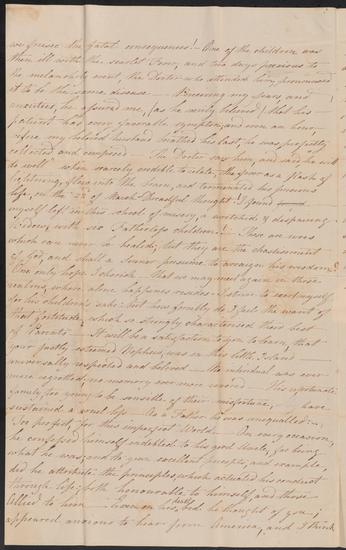 we foresee the fatal consequences! — One of the children was
then ill with the scarlet Fever, and two days previous to
the melancholy event, the Doctor who attended him, pronounced
it to be the same disease — Perceiving my fears, and
anxieties, he assured me, (as he surely believed) that his
patient had every favorable symptom; and even an hour,
before my beloved husband breathed his last, he was perfectly
collected and composed — The Doctor saw him, and said he was
well — when scarcely enabled to relate, the fever as a flash of
lightning, flew into the brain, and terminated his precious
life, on the 22 of March Dreadful thought — I found
myself left in this school of misery, a wretched & despairing
Widow, with six Fatherless children!! — These are woes
which can never be healed; but they are the chastisement
of God, and shall a sinner presume to arraign his wisdom?
One only hope I cherish — that we may meet again in those
realms, where alone happiness resides — I strive to exert myself
for his children's sake: but how forcibly do I feel the want of
that fortitude, which so strongly characterised their best
of Parents — It will be a satisfaction to you to learn, that
your justly esteemed Nephew, was in this little Island
universally respected and beloved — No individual was ever
more regretted; no memory ever more revered — His unfortunate
family, too young to be sensible of their misfortune, have
sustained a cruel life — As a Father he was unequalled —
Too perfect, for this imperfect World — On every occasion,
he confessed himself indebted to his good Uncle, for being
what he was; and to your excellent precepts, and example,
did he attribute the principles, which actuated his conduct
through life; both honourable to himself, and those
Allied to him — Even on his death bed, he thought of you;
appeared anxious to hear from America, and I think